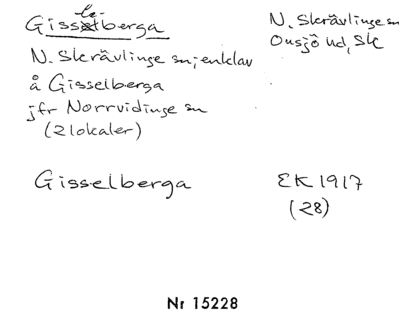 Gisselberga
N. Skrävlinge sn
Onsjö hd, Sk
N. Skrävlinge sn; enklav
å Gisselberga
jfr Norrvidinge sn
(2 lokaler)
Gisselberga
EK 1917
(28)
Nr 15228